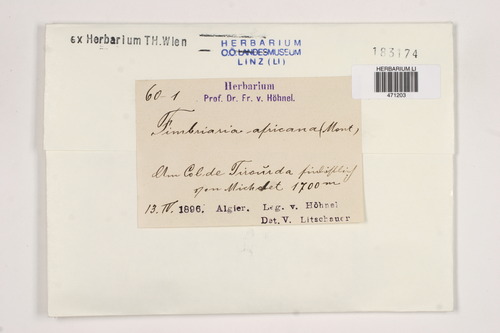 ex Herbarium TH.Wien
HERBARIUM
O.Ö. LANDESMUSEUM
LINZ (LI)
183174
HERBARIUM LI
471203
Herbarium
Prof. Dr. Fr. v. Höhnel.
60-1
Fimbriaria africana (Mont)
Am Col de Tirourda südöstlich
von Michelet 1700 m
13. IV. 1896. Algier. Leg. v. Höhnel
Det. V. Litschauer